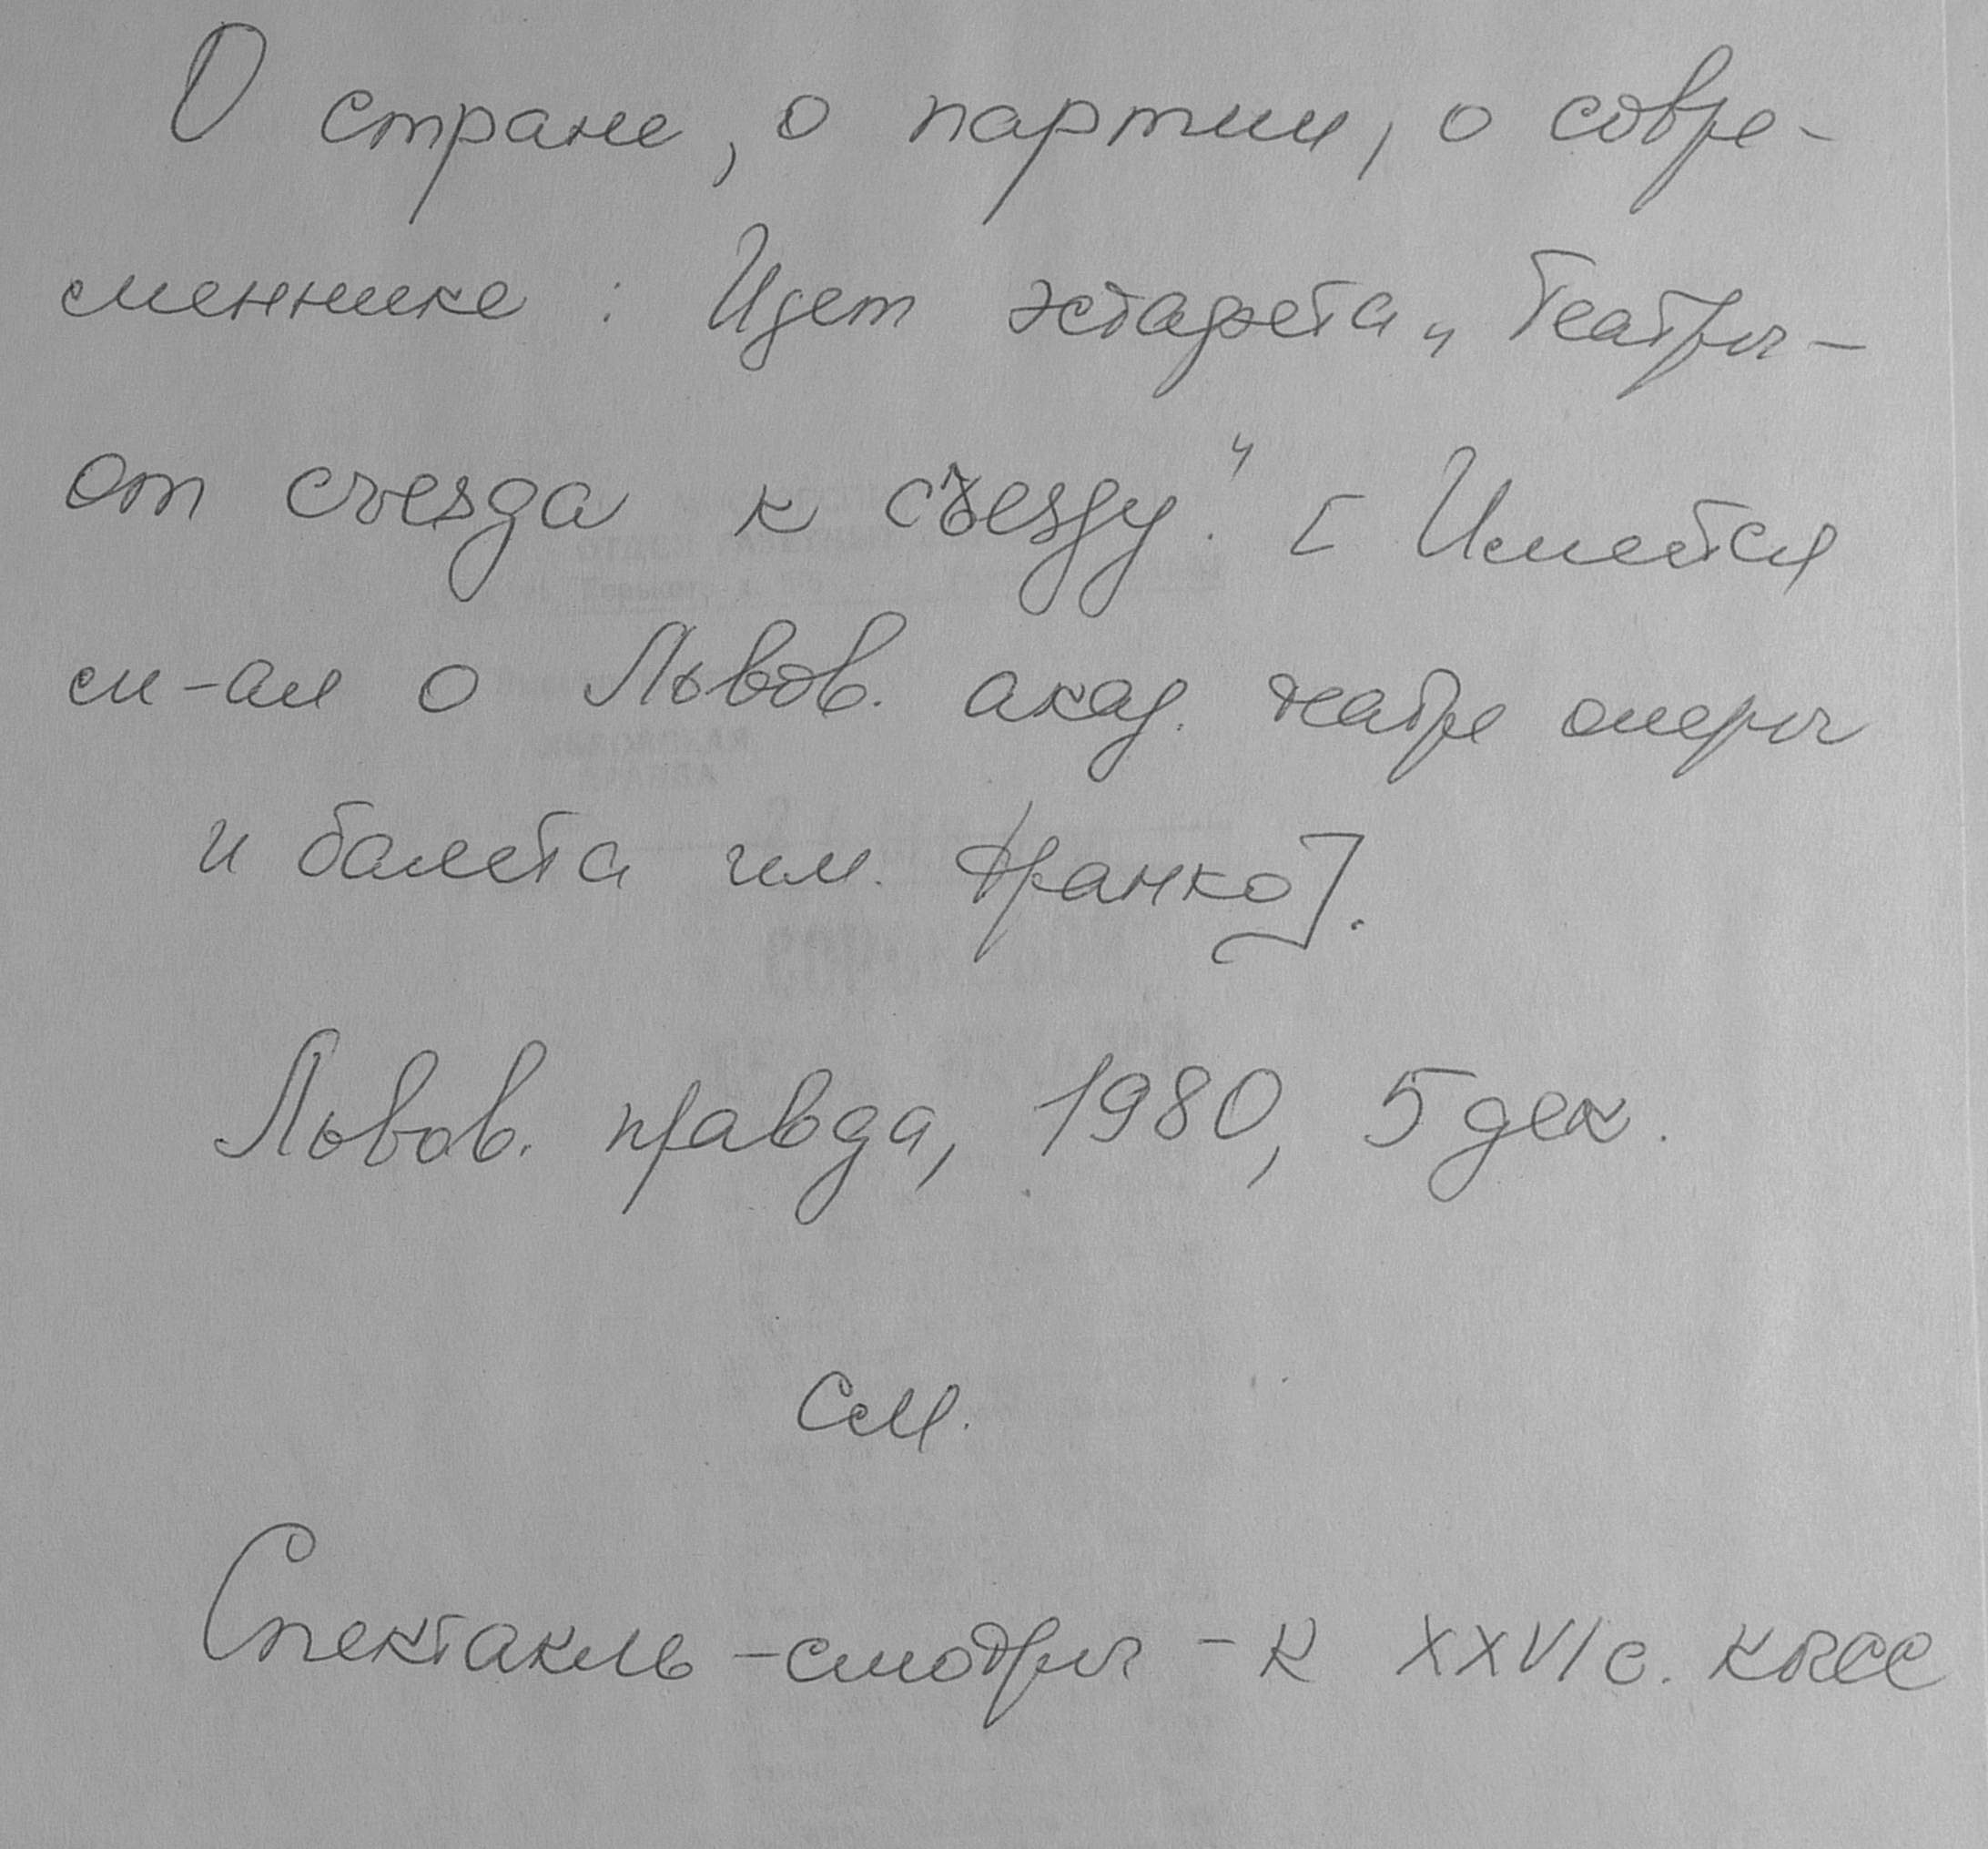 О стране, о партии, о совре-
меннике : Идет эстафета „Театры -
от съезда к съезду". [ Имеется
м-ал о Львов. акад. театре оперы
и балета им. Франко].
Львов. правда, 1980, 5 дек.
См.
Спектакль - смотры - к XXVI с. КПСС